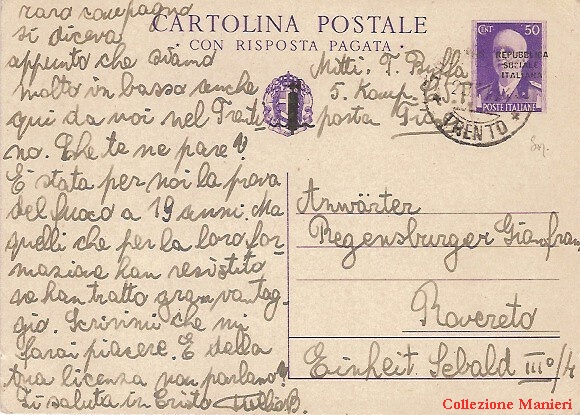 CARTOLINA POSTALE
CON RISPOSTA PAGATA
CENT. 50
REPUBBLICA
SOCIALE
ITALIANA
POSTE ITALIANE
TRENTO
raro compagno
si diceva
appunto che siamo
molto in basso anche
qui da voi nel Trenti-
no. Che te ne pare?
È stata per noi la prova
del fuoco a 19 anni. Ma
quelli che per la loro for-
mazione han resistito
ne han tratto gran vantag-
gio. Scrivimi che mi
farai piacere. E della
tua licenza non parlano?
Ti saluta in Cristo Tullio B.
Mitt. T. B
5. Komp.
posta
Anwärter
Regensburger Gianfran.
Rovereto
Einheit Sebald III°/4
Collezione Manieri